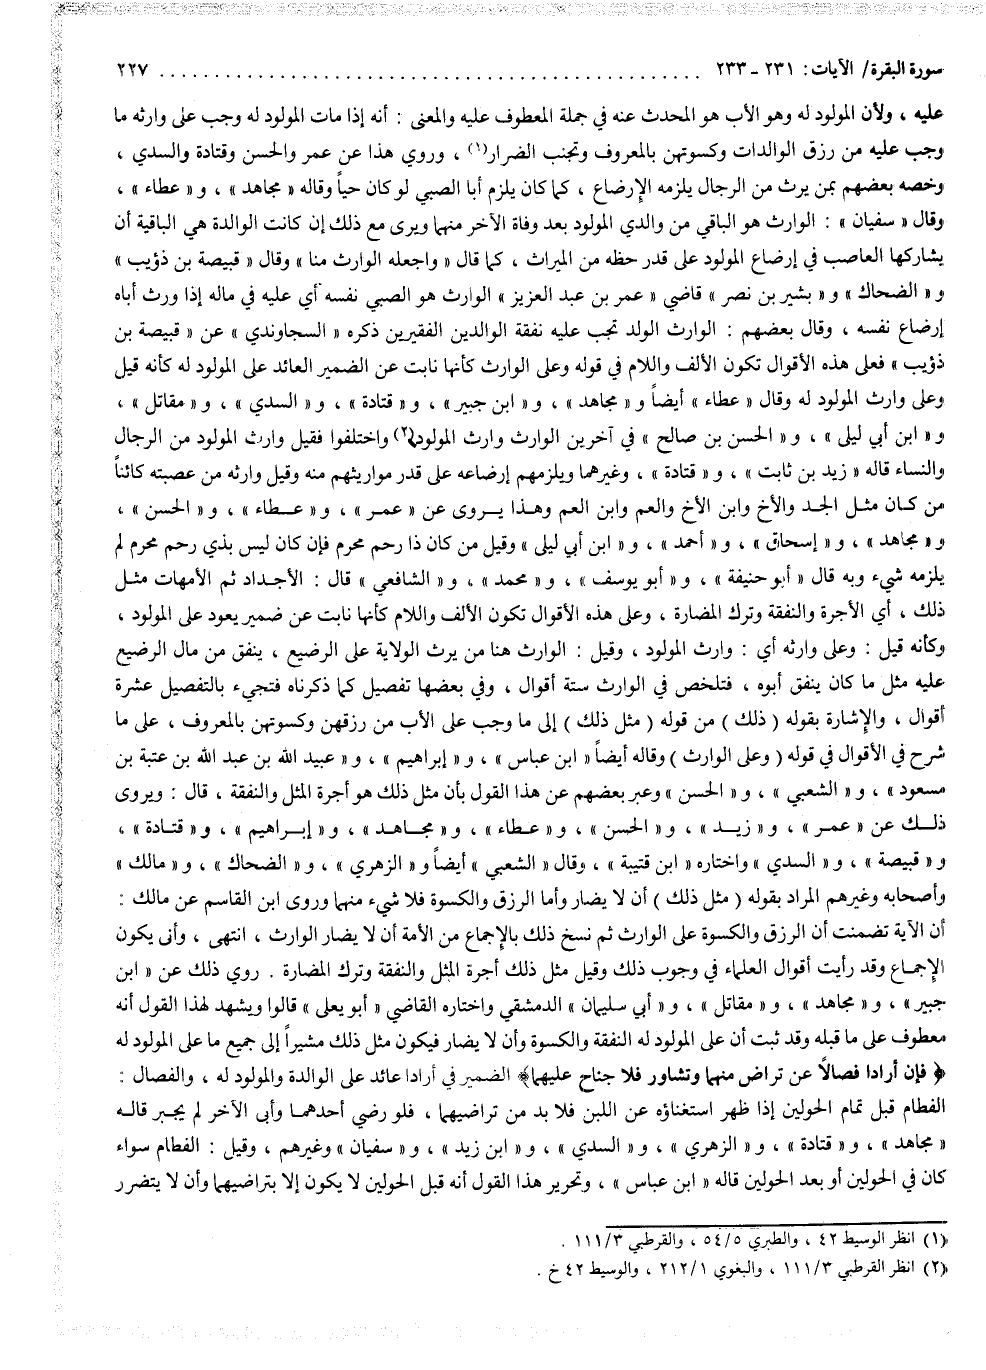 سورة البقرة/ الآيات: ٢٣١ - ٢٣٣ .................................................. ٢٢٧
عليه ، ولأن المولود له وهو الأب هو المحدث عنه في جملة المعطوف عليه والمعنى : أنه إذا مات المولود له وجب على وارثه ما
وجب عليه من رزق الوالدات وكسوتهن بالمعروف وتجنب الضرار(١) ، وروي هذا عن عمر والحسن وقتادة والسدي ،
وخصه بعضهم بمن يرث من الرجال يلزمه الإرضاع ، كما كان يلزم أبا الصبي لو كان حياً وقاله « مجاهد » ، و « عطاء » ،
وقال « سفيان » : الوارث هو الباقي من والدي المولود بعد وفاة الآخر منهما ويرى مع ذلك إن كانت الوالدة هي الباقية أن
يشاركها العاصب في إرضاع المولود على قدر حظه من الميراث ، كما قال « واجعله الوارث منا » وقال « قبيصة بن ذؤيب »
و « الضحاك » و « بشير بن نصر » قاضي « عمر بن عبد العزيز » الوارث هو الصبي نفسه أي عليه في ماله إذا ورث أباه
إرضاع نفسه ، وقال بعضهم : الوارث الولد تجب عليه نفقة الوالدين الفقيرين ذكره « السجاوندي » عن « قبيصة بن
ذؤيب » فعلى هذه الأقوال تكون الألف واللام في قوله وعلى الوارث كأنها نابت عن الضمير العائد على المولود له كأنه قيل
وعلى وارث المولود له وقال « عطاء » أيضاً و « مجاهد » ، و « ابن جبير » ، و « قتادة » ، و « السدي » ، و « مقاتل » ،
و « ابن أبي ليلى » ، و « الحسن بن صالح » في آخرين الوارث وارث المولود(٢) واختلفوا فقيل وارث المولود من الرجال
والنساء قاله « زيد بن ثابت » ، و « قتادة » ، وغيرهما ويلزمهم إرضاعه على قدر مواريثهم منه وقيل وارثه من عصبته كائناً
من كان مثل الجد والأخ وابن الأخ والعم وابن العم وهذا يروى عن « عمر » ، و « عطاء » ، و « الحسن » ،
و « مجاهد » ، و « إسحاق » ، و « أحمد » ، و « ابن أبي ليلى » وقيل من كان ذا رحم محرم فإن كان ليس بذي رحم محرم لم
يلزمه شيء وبه قال « أبو حنيفة » ، و « أبو يوسف » ، و « محمد » ، و « الشافعي » قال : الأجداد ثم الأمهات مثل
ذلك ، أي الأجرة والنفقة وترك المضارة ، وعلى هذه الأقوال تكون الألف واللام كأنها نابت عن ضمير يعود على المولود ،
وكأنه قيل : وعلى وارثه أي : وارث المولود ، وقيل : الوارث هنا من يرث الولاية على الرضيع ، ينفق من مال الرضيع
عليه مثل ما كان ينفق أبوه ، فتلخص في الوارث ستة أقوال ، وفي بعضها تفصيل كما ذكرناه فتجيء بالتفصيل عشرة
أقوال ، والإشارة بقوله ( ذلك ) من قوله ( مثل ذلك ) إلى ما وجب على الأب من رزقهن وكسوتهن بالمعروف ، على ما
شرح في الأقوال في قوله ( وعلى الوارث ) وقاله أيضاً « ابن عباس » ، و « إبراهيم » ، و « عبيد الله بن عبد الله بن عتبة بن
مسعود » ، و « الشعبي » ، و « الحسن » وعبر بعضهم عن هذا القول بأن مثل ذلك هو أجرة المثل والنفقة ، قال : ويروى
ذلك عن « عمر » ، و « زيد » ، و « الحسن » ، و « عطاء » ، و « مجاهد » ، و « إبراهيم » ، و « قتادة » ،
و « قبيصة » ، و « السدي » واختاره « ابن قتيبة » ، وقال « الشعبي » أيضاً و « الزهري » ، و « الضحاك » ، و « مالك »
وأصحابه وغيرهم المراد بقوله ( مثل ذلك ) أن لا يضار وأما الرزق والكسوة فلا شيء منهما وروى ابن القاسم عن مالك :
أن الآية تضمنت أن الرزق والكسوة على الوارث ثم نسخ ذلك بالإجماع من الأمة أن لا يضار الوارث ، انتهى ، وأنى يكون
الإجماع وقد رأيت أقوال العلماء في وجوب ذلك وقيل مثل ذلك أجرة المثل والنفقة وترك المضارة . روي ذلك عن « ابن
جبير » ، و « مجاهد » ، و « مقاتل » ، و « أبي سليمان » الدمشقي واختاره القاضي « أبو يعلى » قالوا ويشهد لهذا القول أنه
معطوف على ما قبله وقد ثبت أن على المولود له النفقة والكسوة وأن لا يضار فيكون مثل ذلك مشيراً إلى جميع ما على المولود له
﴿ فإن أرادا فصالاً عن تراض منهما وتشاور فلا جناح عليهما﴾ الضمير في أرادا عائد على الوالدة والمولود له ، والفصال :
الفطام قبل تمام الحولين إذا ظهر استغناؤه عن اللبن فلا بد من تراضيهما ، فلو رضي أحدهما وأبى الآخر لم يجبر قاله
« مجاهد » ، و « قتادة » ، و « الزهري » ، و « السدي » ، و « ابن زيد » ، و « سفيان » وغيرهم ، وقيل : الفطام سواء
كان في الحولين أو بعد الحولين قاله « ابن عباس » ، وتحرير هذا القول أنه قبل الحولين لا يكون إلا بتراضيهما وأن لا يتضرر
(١) انظر الوسيط ٤٢ ، والطبري ٥٤/٥ ، والقرطبي ١١١/٣ .
(٢) انظر القرطبي ١١١/٣ ، والبغوي ٢١٢/١ ، والوسيط ٤٢ خ .